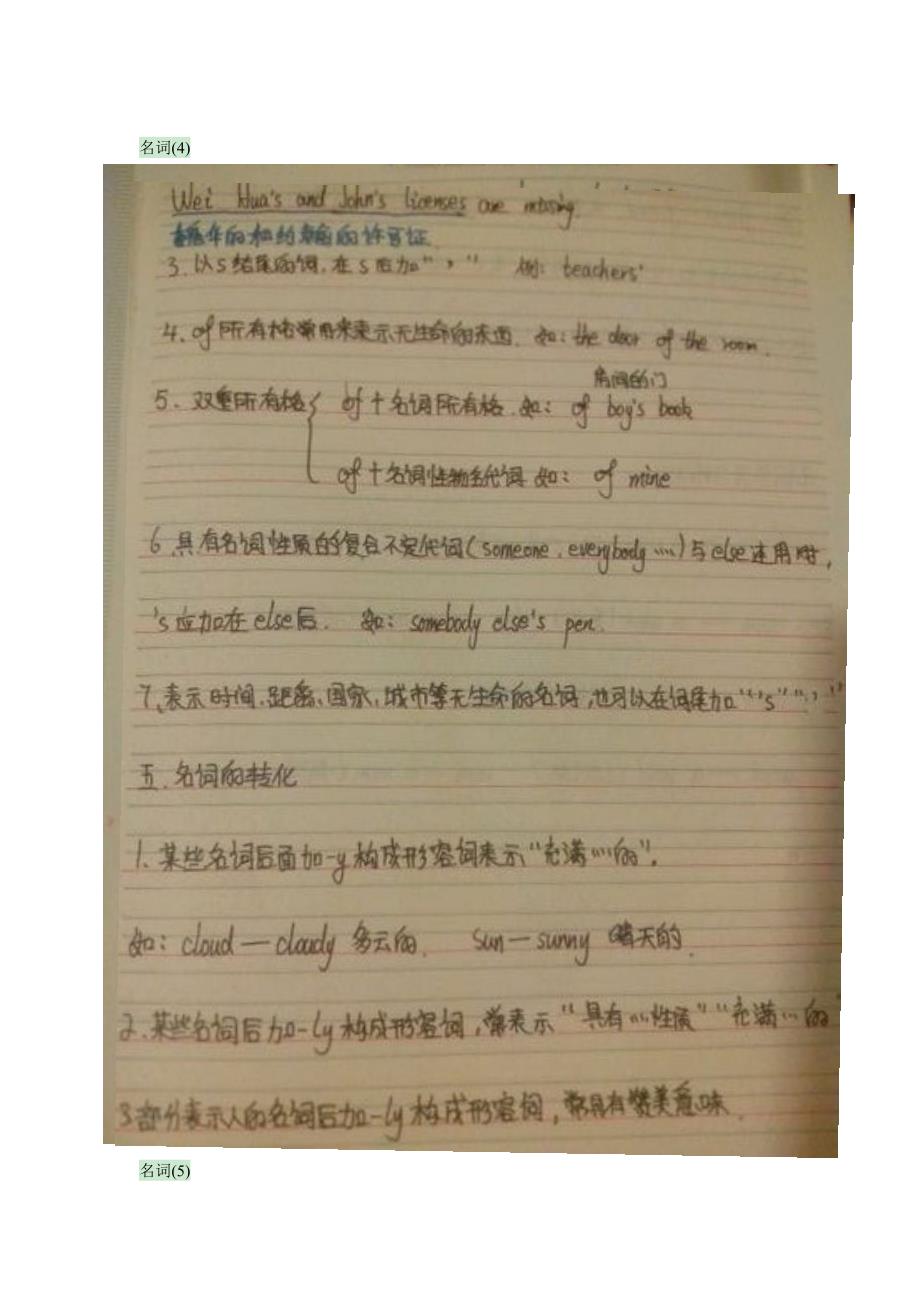 名词(4)
Wei Hua's and John's licenses are missing.
华的和约翰的许可证.
3. 以s结尾的词,在s后加“ , ” 例: teachers'
4. of所有格常用来表示无生命的东西. 如: the door of the room.
房间的门
5. 双重所有格{ of+名词所有格. 如: of boy's book
of+名词性物主代词 如: of mine
6.具有名词性质的复合不定代词(someone, everybody ……)与else连用时,
's应加在else后. 如: somebody else's pen.
7、表示时间、距离、国家、城市等无生命的名词,也可以在词尾加“'s”“'”
五. 名词的转化
1、某些名词后面加-y构成形容词表示“充满……的”。
如: cloud — cloudy 多云的. sun — sunny 晴天的.
2、某些名词后加-ly构成形容词,常表示“具有…性质”“充满…的”
3.部分表示人的名词后加-ly构成形容词,常具有赞美意味.
名词(5)